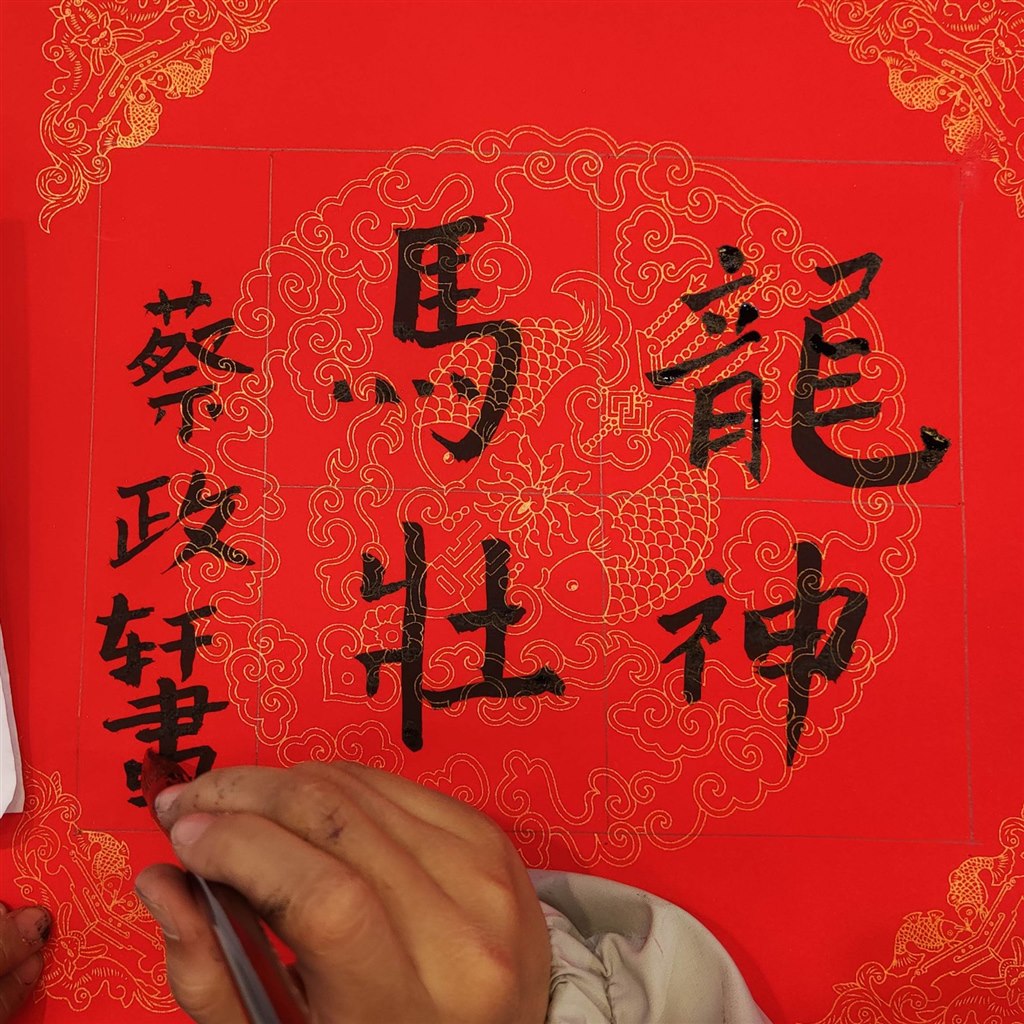 龍神
馬壯
蔡政轩書